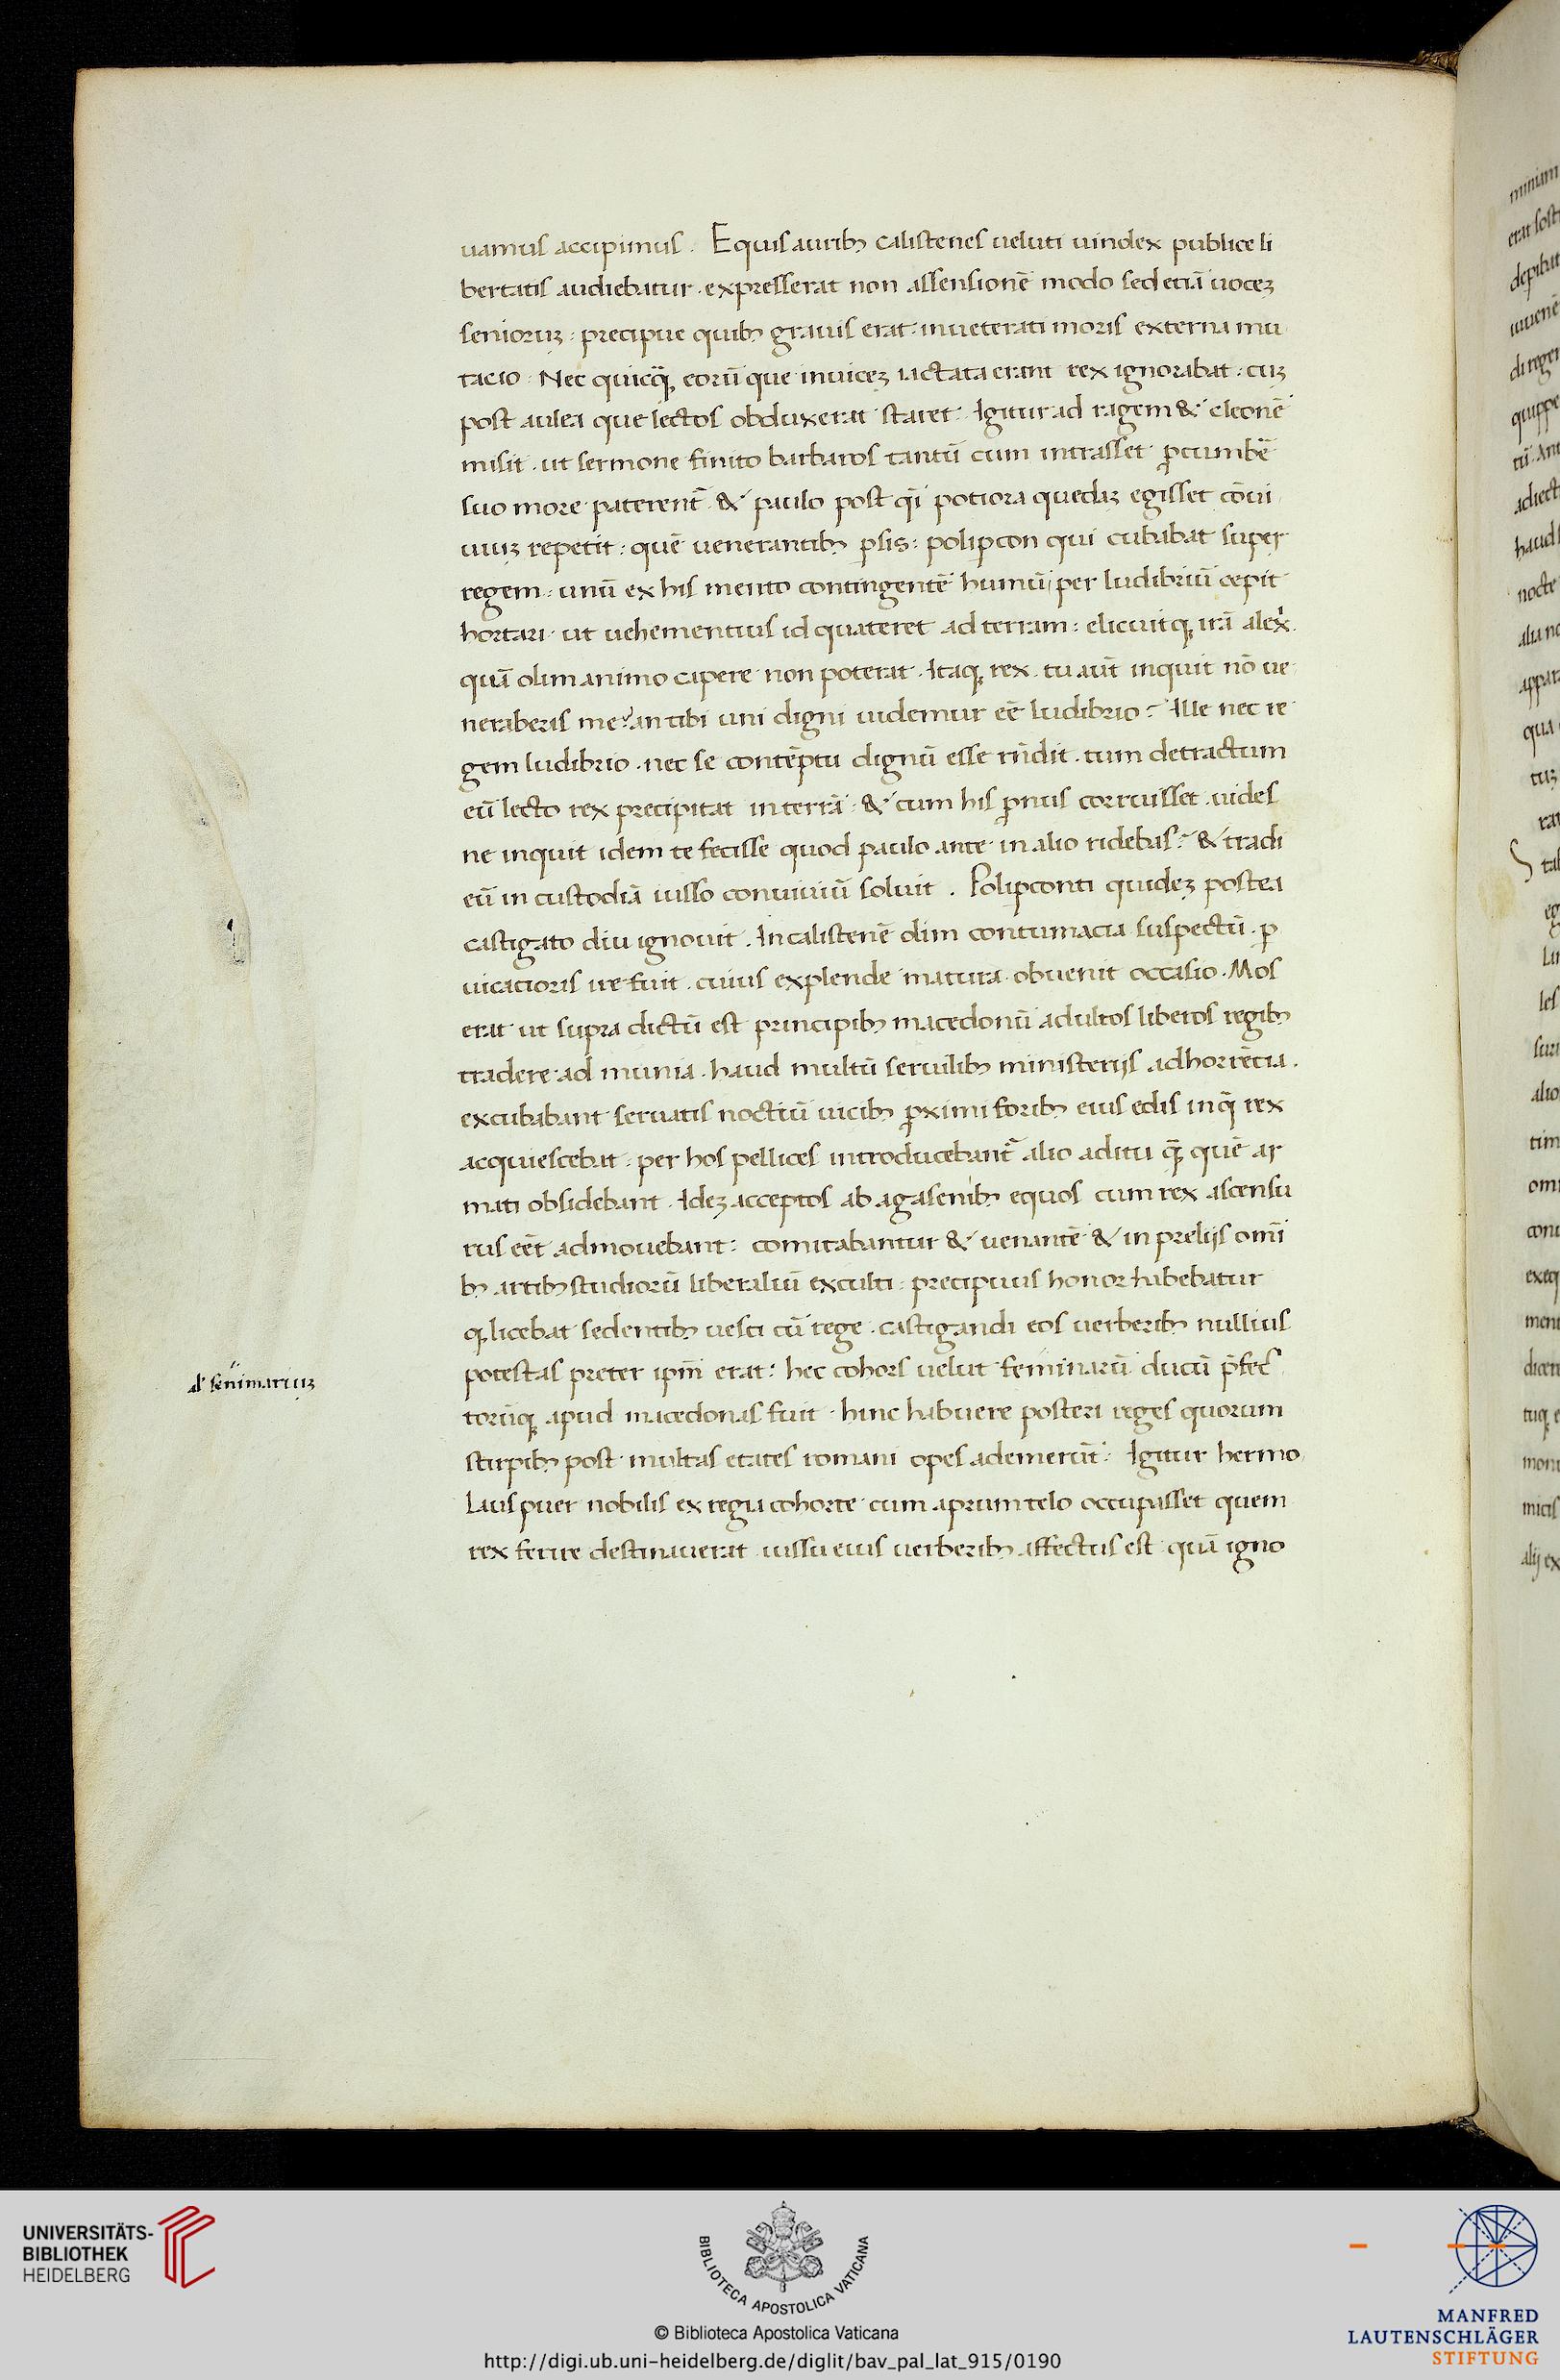 uamus accipimus. Equis auribꝫ calistenes ueluti uindex publice li
bertatis audiebatur. expresserat non assensionē modo sed etiā uoceꝫ
senioruꝫ: precipue quibꝫ grauis erat inueterati moris externa mu
tacio. Nec quicq̄ꝫ eorū que inuiceꝫ iactata erant rex ignorabat: cuꝫ
post aulea que lectos obduxerat staret. Igitur ad ragem & cleonē
misit. ut sermone finito barbaros tantū cum intrasset ꝓcumbē
suo more paterent̄ & paulo post q̄i potiora quedaꝫ egisset cōui
uiuꝫ repetit: quē uenerantibꝫ ꝑsis: polipcon qui cubabat super
regem: unū ex his mento contingentē humū per ludibriū cepit
hortari ut uehementius id quateret ad terram: elicuitqꝫ irā alex̄.
quā olim animo capere non poterat. Itaqꝫ rex. tu aūt inquit nō ue
neraberis me? an tibi uni digni uidemur eē ludibrio? Ille nec re
gem ludibrio. nec se contēptu dignū esse rn̄dit. tum detractum
eū lecto rex precipitat in terrā & cum his ꝓnus corruisset. uides
ne inquit idem te fecisse quod paulo ante in alio ridebas? & tradi
eū in custodiā iusso conuiuiū soluit. Polipconti quideꝫ postea
castigato diu ignouit. In calistenē olim contumacia suspectū. ꝑ
uicacioris ire fuit. cuius explende matura obuenit occasio. Mos
erat ut supra dictū est principibꝫ macedonū adultos liberos regibꝫ
tradere ad munia. haud multū seruilibꝫ ministerijs adhorrētia.
excubabant seruatis noctiū uicibꝫ ꝓximi foribꝫ eius edis in q̄ rex
acquiescebat: per hos pellices introducebant̄ alio aditu q̄ꝫ quē ar
mati obsidebant. Ideꝫ acceptos ab agasenibꝫ equos cum rex ascensu
rus eēt admouebant: comitabantur & uenantē & in prelijs omī
bꝫ artibꝫ studiorū liberaliū exculti: precipuus honor habebatur
qꝫ licebat sedentibꝫ uesci cū rege. castigandi eos uerberibꝫ nullius
potestas preter ip̄m erat: hec cohors uelut feminarū ducū p̄fec
torūqꝫ apud macedonas fuit. hinc habuere posteri reges quorum
stirpibꝫ post multas etates romani opes ademerūt. Igitur hermo
laus puer nobilis ex regia cohorte cum aprum telo occupasset quem
rex ferire destinauerat iussu eius uerberibꝫ affectus est quā igno
al' seminariuꝫ
UNIVERSITÄTS-
BIBLIOTHEK
HEIDELBERG
BIBLIOTECA APOSTOLICA VATICANA
© Biblioteca Apostolica Vaticana
http://digi.ub.uni-heidelberg.de/diglit/bav_pal_lat_915/0190
MANFRED
LAUTENSCHLÄGER
STIFTUNG